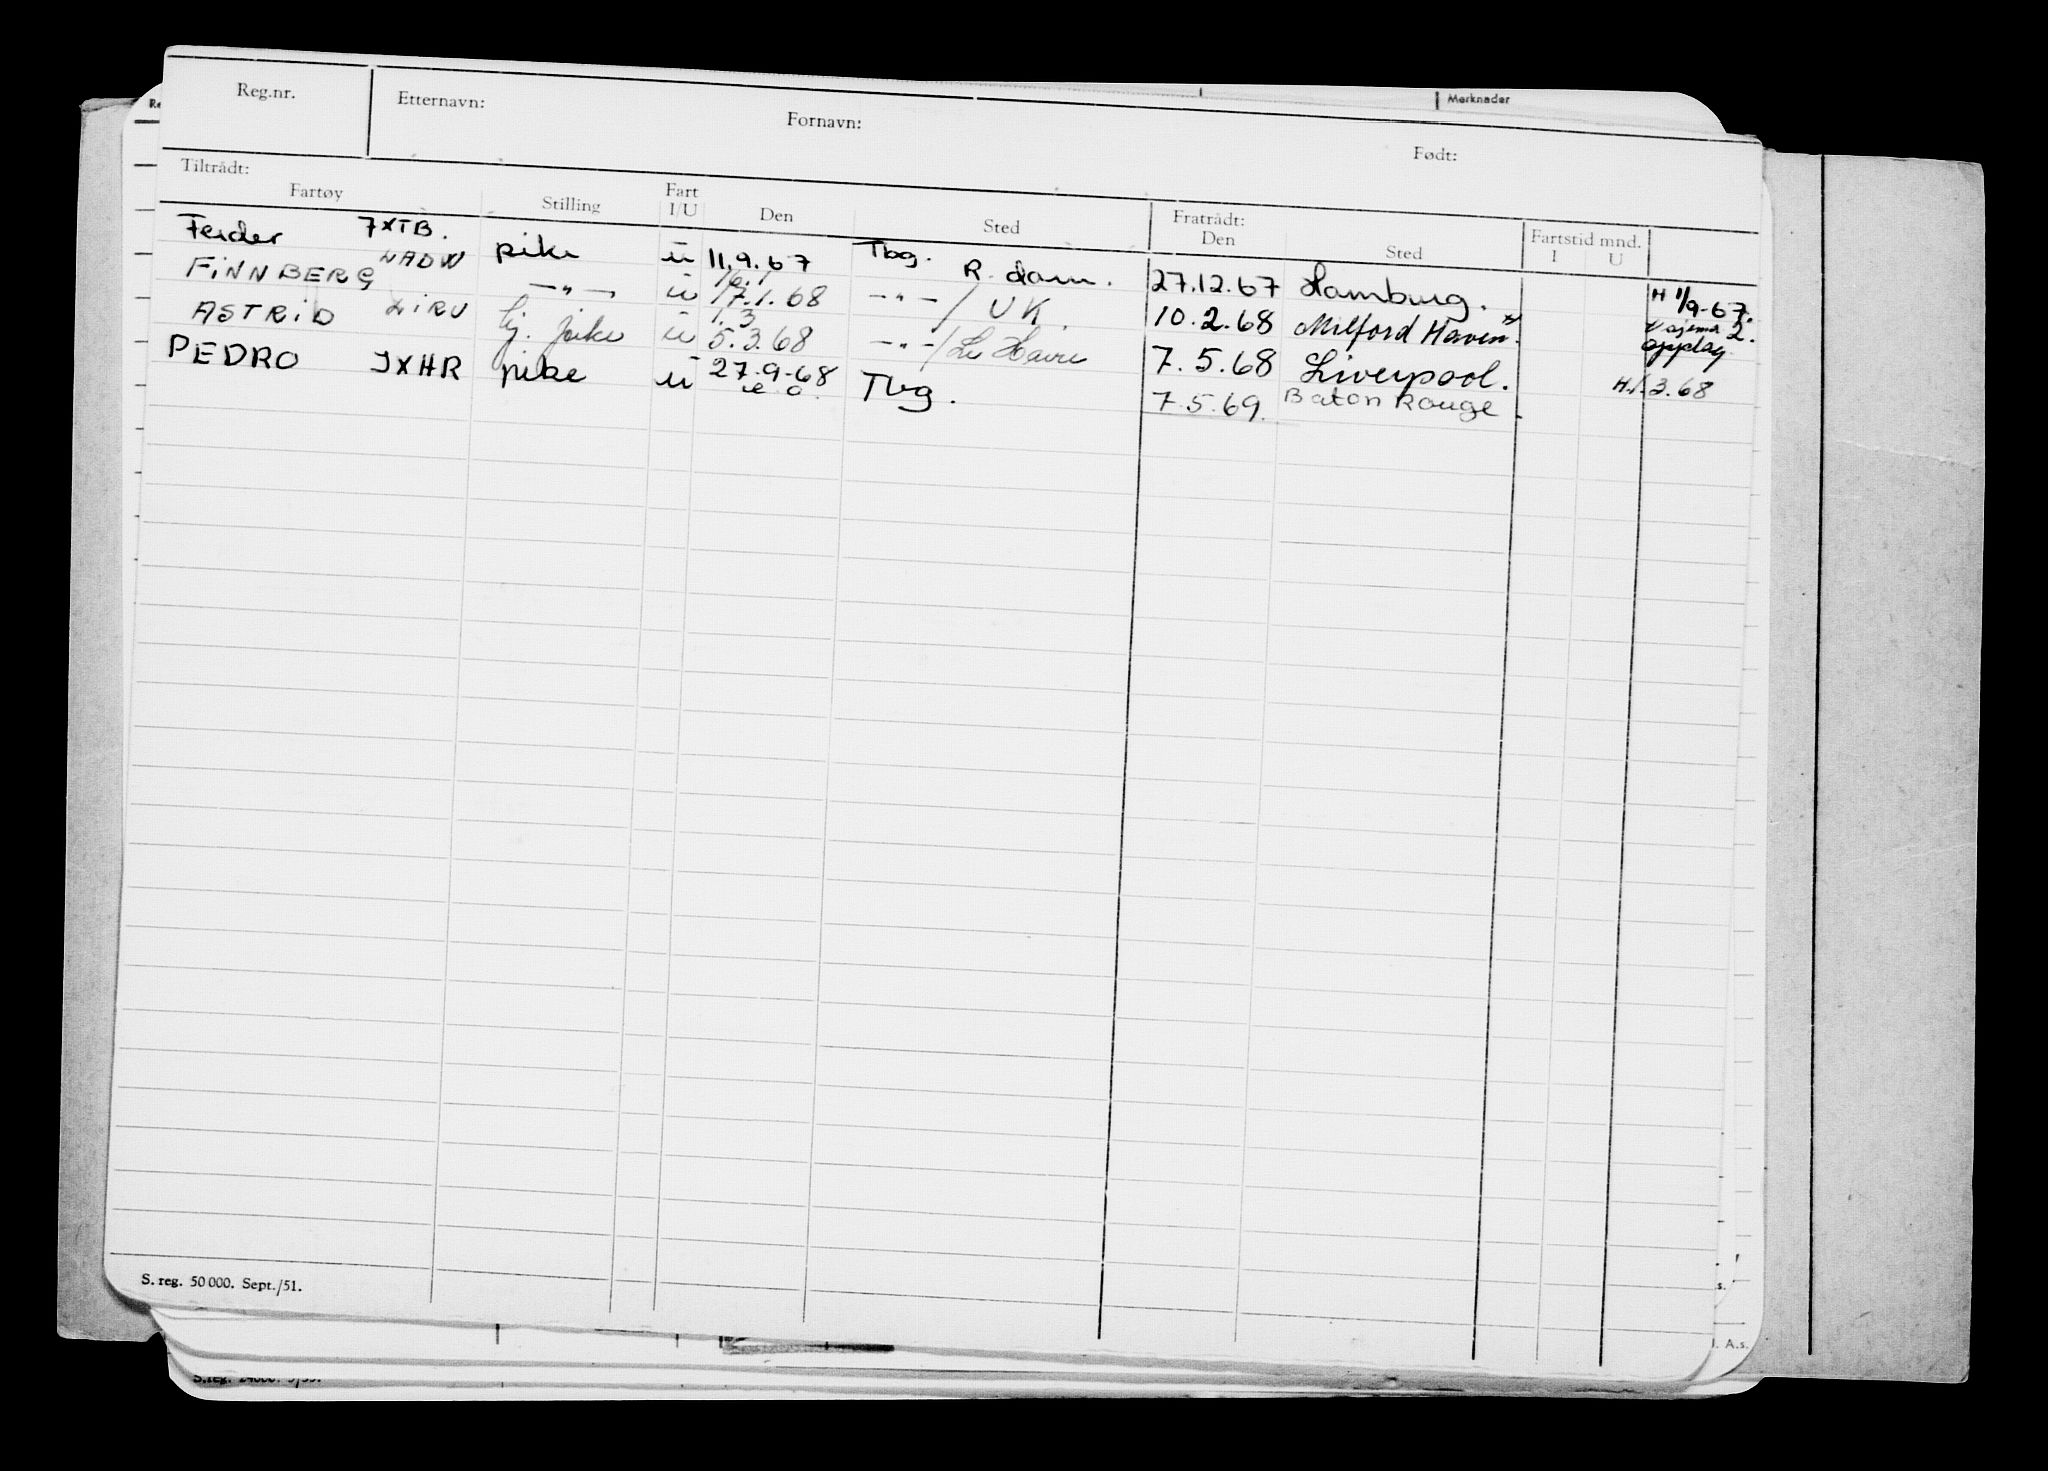 Merknader
Reg.nr.
Etternavn:
Fornavn:
Født:
Tiltrådt:
Fartøy
Stilling
Fart
I/U
Den
Sted
Fratrådt:
Den
Sted
Fartstid mnd.
I
U
Ferder 7XTB. pike ü 11.9.67 Tbg. R.dam. 27.12.67 Hamburg. H 1/9-67.
16.1
FINNBERG LADW — " — ü 17.1.68 — " — / UK. 10.2.68 Milford Haven. 2.
opplag
1.3
ASTRID LIRU pike ü 5.3.68 — " — / Le Havre 7.5.68 Liverpool. H.1.3.68
PEDRO JXHR pike ü 27.9.68 Tbg. 7.5.69. Baton Rouge.
S. reg. 50 000. Sept./51.
l. A.s.